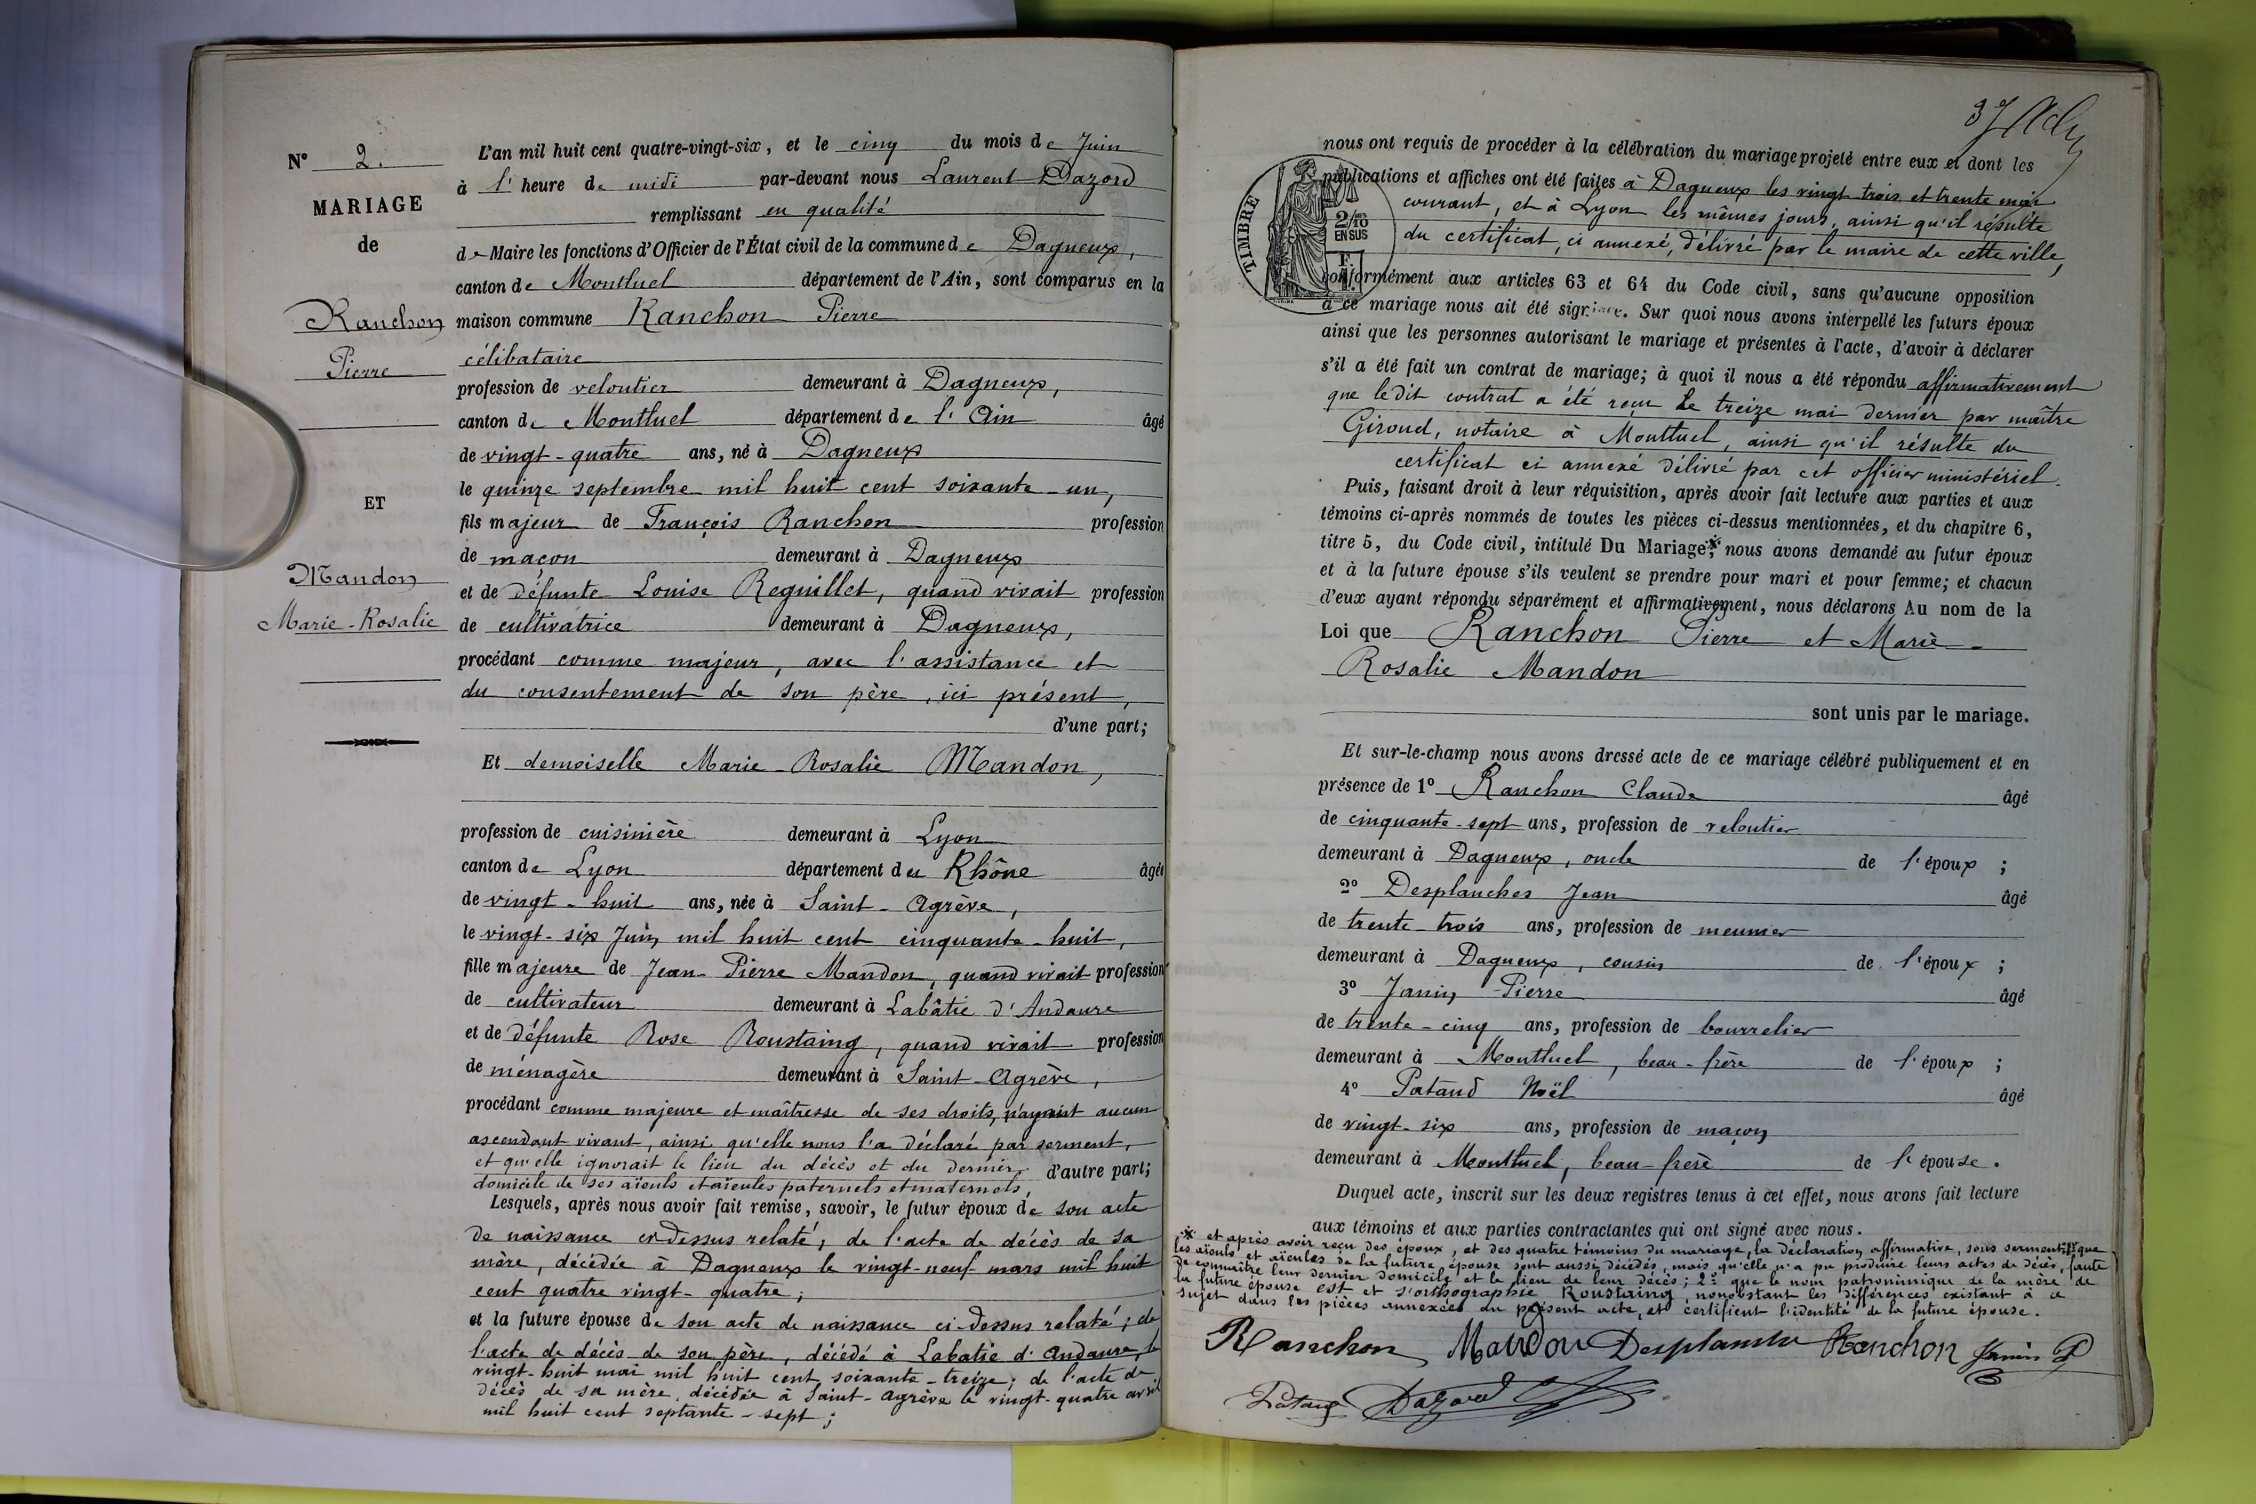 N° 2.
MARIAGE
de
Ranchon
Pierre
ET
Mandon
Marie-Rosalie
L'an mil huit cent quatre-vingt-six, et le cinq du mois de Juin
à l'heure de midi par-devant nous Laurent Dazord
remplissant en qualité
de Maire les fonctions d'Officier de l'État civil de la commune de Dagneux,
canton de Montluel département de l'Ain, sont comparus en la
maison commune Ranchon Pierre
célibataire
profession de veloutier demeurant à Dagneux,
canton de Montluel département de l'Ain âgé
de vingt-quatre ans, né à Dagneux
le quinze septembre mil huit cent soixante-un,
fils majeur de François Ranchon profession
de maçon demeurant à Dagneux
et de défunte Louise Reguillet, quand vivait profession
de cultivatrice demeurant à Dagneux,
procédant comme majeur, avec l'assistance et
du consentement de son père, ici présent,
d'une part;
Et demoiselle Marie-Rosalie Mandon,
profession de cuisinière demeurant à Lyon
canton de Lyon département du Rhône âgée
de vingt-huit ans, née à Saint-Agrève,
le vingt-six Juin mil huit cent cinquante-huit,
fille majeure de Jean-Pierre Mandon, quand vivait profession
de cultivateur demeurant à Labâtie d'Andaure
et de défunte Rose Roustaing, quand vivait profession
de ménagère demeurant à Saint-Agrève,
procédant comme majeure et maîtresse de ses droits, n'ayant aucun
ascendant vivant, ainsi qu'elle nous l'a déclaré par serment,
et qu'elle ignorait le lieu du décès et du dernier d'autre part;
domicile de ses aïeuls et aïeules paternels et maternels,
Lesquels, après nous avoir fait remise, savoir, le futur époux de son acte
de naissance ci-dessus relaté; de l'acte de décès de sa
mère, décédée à Dagneux le vingt-neuf mars mil huit
cent quatre vingt-quatre;
et la future épouse de son acte de naissance ci-dessus relaté; de
l'acte de décès de son père, décédé à Labatie d'Andaure, le
vingt-huit mai mil huit cent soixante-treize; de l'acte de
décès de sa mère, décédée à Saint-Agrève le vingt-quatre avril
mil huit cent septante-sept;
37
TIMBRE
2/10
EN SUS
nous ont requis de procéder à la célébration du mariage projeté entre eux et dont les
publications et affiches ont été faites à Dagneux les vingt-trois et trente mai
courant, et à Lyon les mêmes jours, ainsi qu'il résulte
du certificat, ci annexé, délivré par le maire de cette ville,
conformément aux articles 63 et 64 du Code civil, sans qu'aucune opposition
à ce mariage nous ait été signifiée. Sur quoi nous avons interpellé les futurs époux
ainsi que les personnes autorisant le mariage et présentes à l'acte, d'avoir à déclarer
s'il a été fait un contrat de mariage; à quoi il nous a été répondu affirmativement
que le dit contrat a été reçu le treize mai dernier par maître
Giroud, notaire à Montluel, ainsi qu'il résulte du
certificat ci annexé délivré par cet officier ministériel.
Puis, faisant droit à leur réquisition, après avoir fait lecture aux parties et aux
témoins ci-après nommés de toutes les pièces ci-dessus mentionnées, et du chapitre 6,
titre 5, du Code civil, intitulé Du Mariage,* nous avons demandé au futur époux
et à la future épouse s'ils veulent se prendre pour mari et pour femme; et chacun
d'eux ayant répondu séparément et affirmativement, nous déclarons Au nom de la
Loi que Ranchon Pierre et Marie-
Rosalie Mandon
sont unis par le mariage.
Et sur-le-champ nous avons dressé acte de ce mariage célébré publiquement et en
présence de 1° Ranchon Claude âgé
de cinquante-sept ans, profession de veloutier
demeurant à Dagneux, oncle de l'époux;
2° Desplanches Jean âgé
de trente-trois ans, profession de meunier
demeurant à Dagneux, cousin de l'époux;
3° Janin Pierre âgé
de trente-cinq ans, profession de bourrelier
demeurant à Montluel, beau-frère de l'époux;
4° Pataud Noël âgé
de vingt-six ans, profession de maçon
demeurant à Montluel, beau-frère de l'épouse.
Duquel acte, inscrit sur les deux registres tenus à cet effet, nous avons fait lecture
aux témoins et aux parties contractantes qui ont signé avec nous.
* et après avoir reçu des époux, et des quatre témoins du mariage, la déclaration affirmative, sous serment 1° que
les aïeuls et aïeules de la future épouse sont aussi décédés, mais qu'elle n'a pu produire leurs actes de décès, faute
de connaître leur dernier domicile et le lieu de leur décès; 2° que le nom patronimique de la mère de
la future épouse est et s'orthographie Roustaing, nonobstant les différences existant à ce
sujet dans les pièces annexées du présent acte, et certifient l'identité de la future épouse.
Ranchon Mandon Desplanche Ranchon Janin P
Pataud Dazord